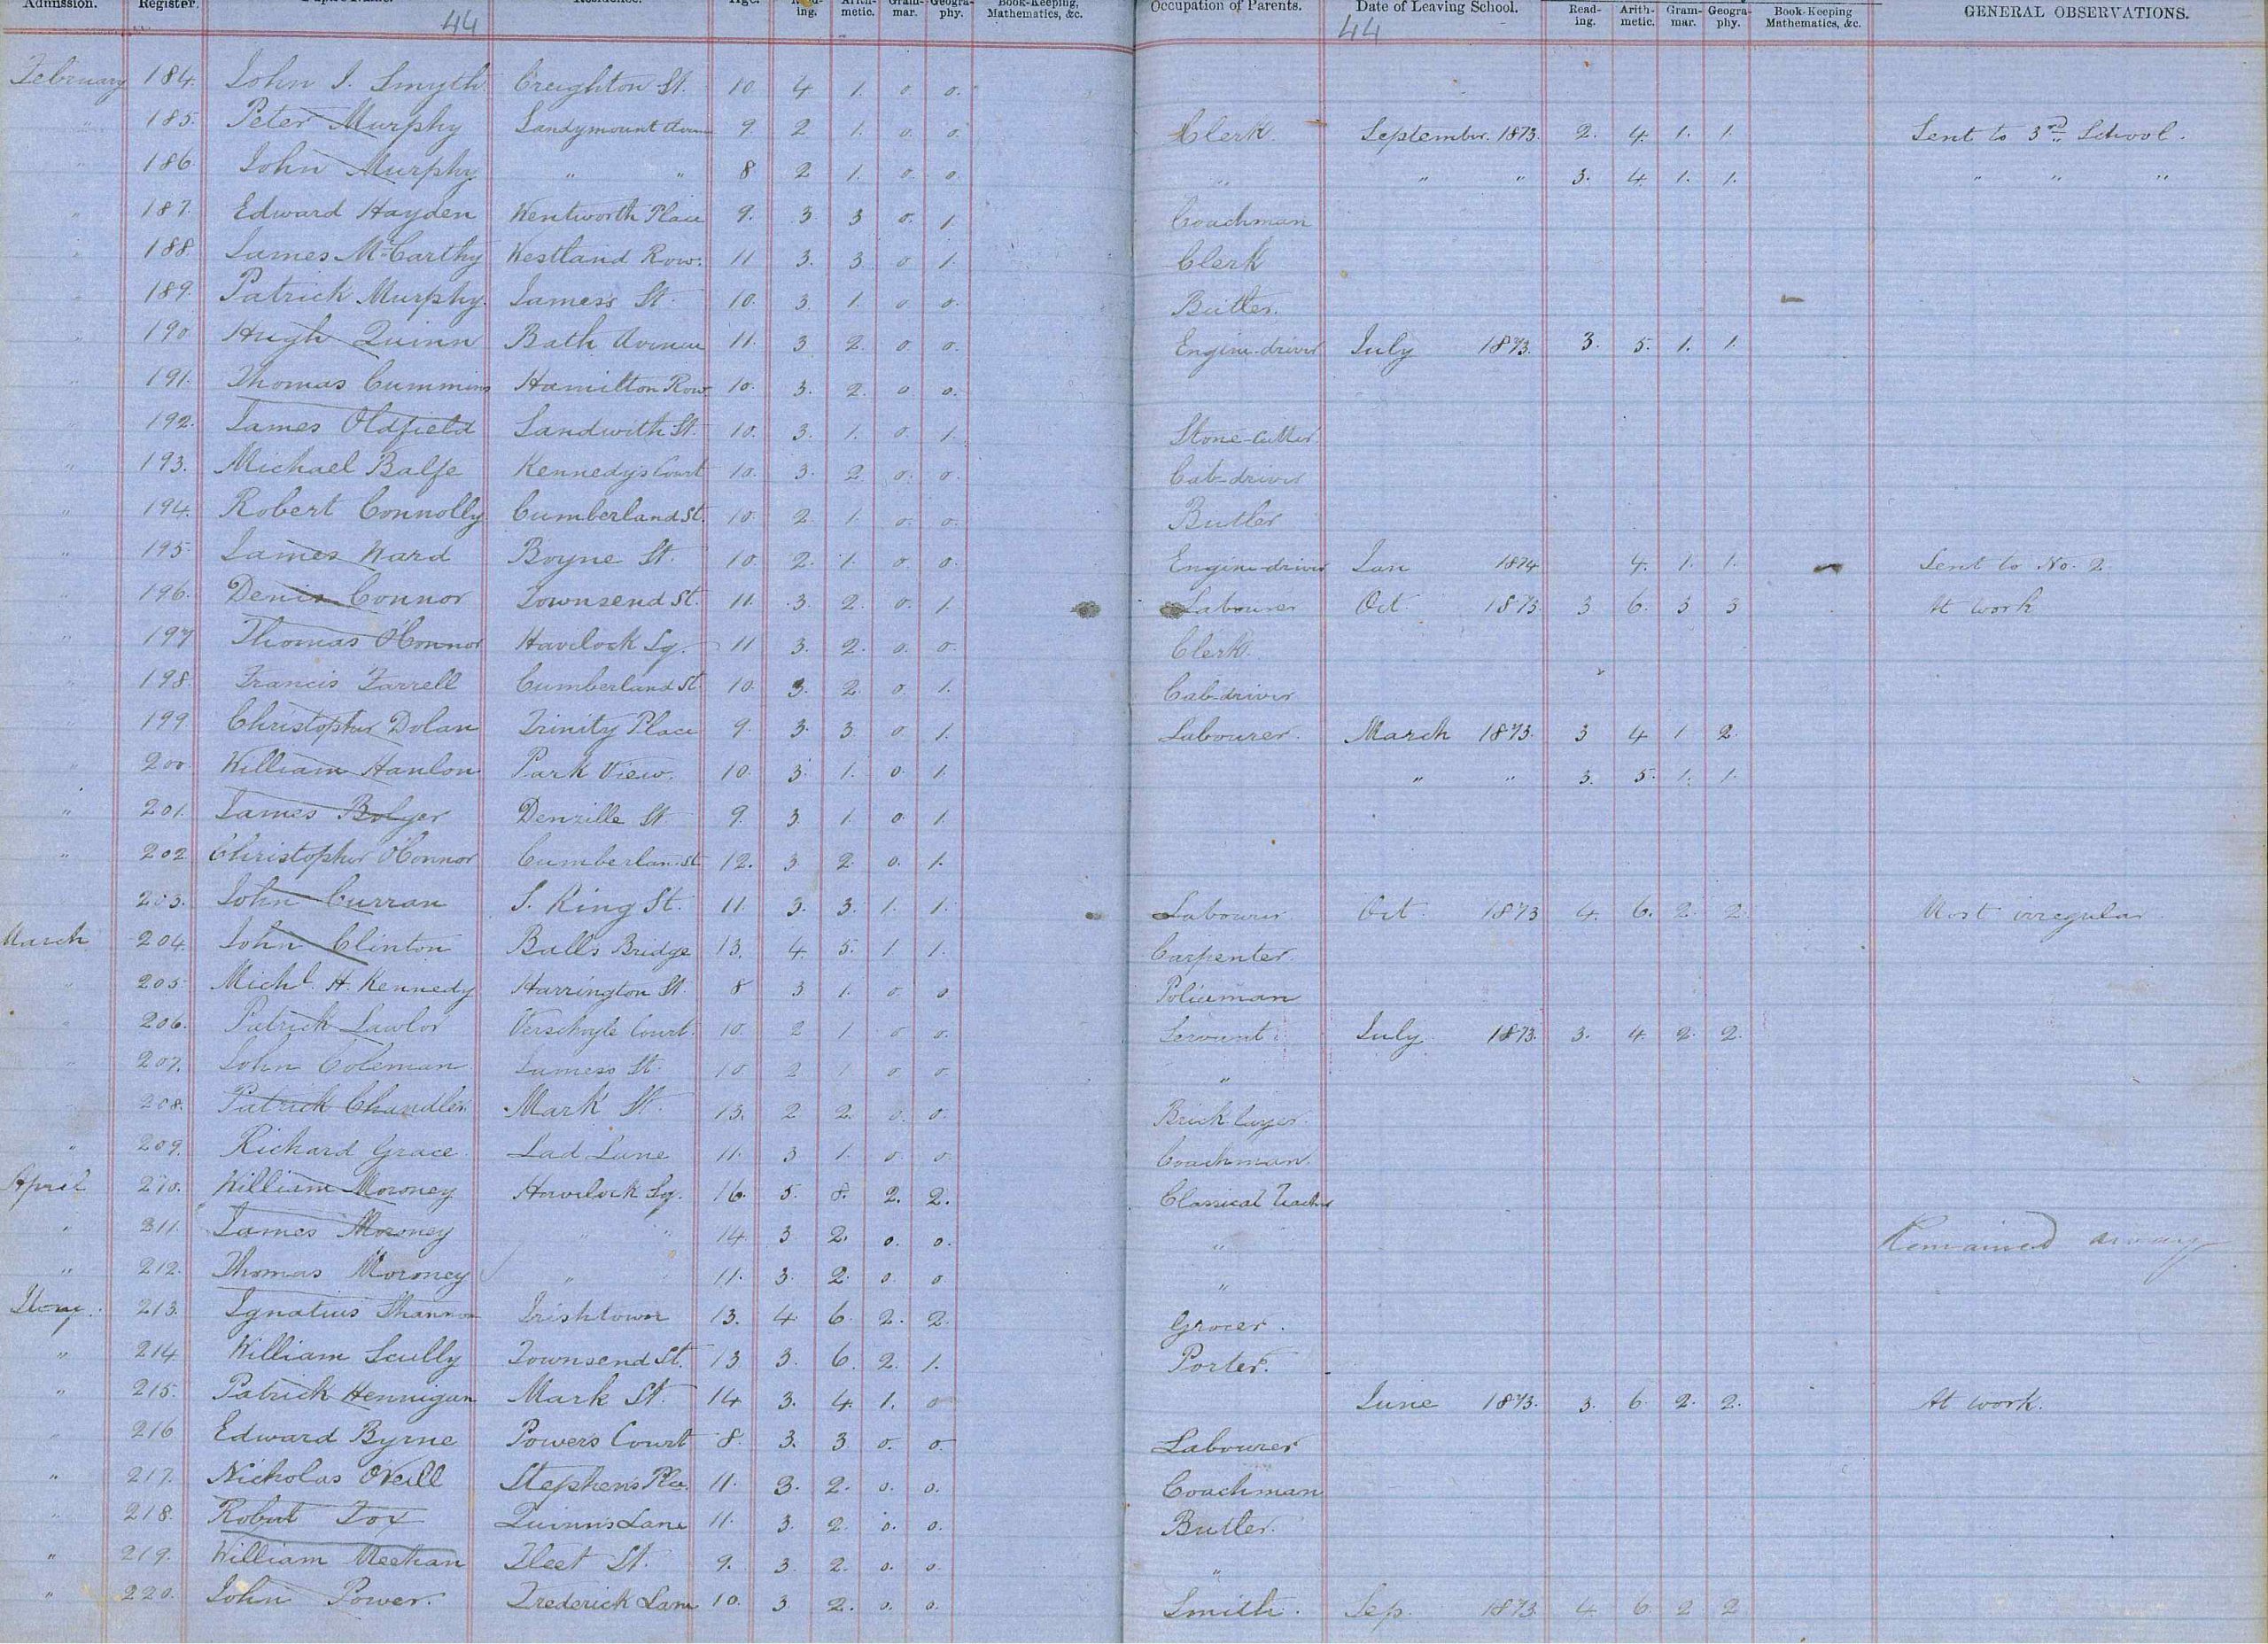 Admission. Register. Pupil's Name. Residence. Age. Read-ing. Arith-metic. Gram-mar. Geogra-phy. Book-Keeping, Mathematics, &c. Occupation of Parents. Date of Leaving School. Read-ing. Arith-metic. Gram-mar. Geogra-phy. Book-Keeping Mathematics, &c. GENERAL OBSERVATIONS.
44 44
February 184. John J. Smyth Creighton St. 10 4 1. 0. 0.
" 185. Peter Murphy Sandymount Avenue 9. 2 1. 0. 0. Clerk September. 1873. 2. 4. 1. 1. Sent to 3rd School.
186 John Murphy " " 8 2 1. 0. 0. " " " 3. 4. 1. 1. " " "
" 187. Edward Hayden Wentworth Place 9. 3 3 0. 1. Coachman
" 188 James McCarthy Westland Row. 11 3. 3 0 1. Clerk
" 189. Patrick Murphy. James's St. 10. 3. 1. 0 0. Butler.
" 190 Hugh Quinn Bath Avenue 11. 3 2. 0. 0. Engine-driver July 1873. 3. 5. 1. 1.
" 191. Thomas Cummins Hamilton Row 10. 3. 2. 0 0.
" 192. James Oldfield Sandwith St. 10. 3. 1. 0. 1. Stone-cutter.
" 193. Michael Balfe Kennedy's Court 10. 3. 2. 0. 0. Cab-driver
" 194. Robert Connolly Cumberland St. 10. 2. 1. 0. 0. Butler
" 195. James Ward Boyne St. 10. 2. 1. 0. 0. Engine-driver Jan 1874 4. 1. 1. Sent to No. 2
" 196. Denis Connor Townsend St. 11. 3. 2. 0. 1. Labourer Oct. 1873 3 6. 3 3 At work
" 197 Thomas O'Connor Havelock Sq. 11 3. 2. 0. 0. Clerk.
" 198. Francis Farrell Cumberland St. 10. 3. 2. 0. 1. Cab-driver
" 199 Christopher Dolan Trinity Place 9. 3. 3. 0. 1. Labourer. March 1873. 3 4 1 2.
" 200. William Hanlon Park View. 10. 3. 1. 0. 1. " " 3. 5. 1. 1.
" 201. James Bolger Denzille St 9. 3. 1. 0. 1.
" 202 Christopher O'Connor Cumberlan. St 12. 3. 2. 0. 1.
203. John Curran S. King St. 11. 3. 3. 1. 1. Labourer Oct. 1873 4. 6. 2. 2. Most irregular
March 204. John Clinton Balls Bridge 13. 4. 5. 1 1. Carpenter.
" 205 Michl. H. Kennedy Harrington St. 8 3 1. 0. 0 Policeman
" 206. Patrick Lawlor Verschoyle Court. 10. 2 1. 0 0. Servant. July 1873. 3. 4. 2. 2.
" 207. John Coleman James's St. 10. 2 1 0. 0. "
" 208. Patrick Chandler Mark St. 13. 2 2. 0. 0. Brick layer.
" 209. Richard Grace. Lad Lane 11. 3 1. 0. 0. Coachman.
April 210. William Moroney Havelock Sq. 16. 5. 8. 2. 2. Classical Teacher
" 211. James Moroney " " 14 3 2. 0. 0. " Remained away
" 212. Thomas Moroney " " 11. 3. 2. 0. 0. "
May. 213. Ignatius Shannon Irishtown 13. 4. 6. 2. 2. Grocer.
" 214 William Scully Townsend St. 13. 3. 6. 2. 1. Porter.
" 215. Patrick Hennigan Mark St. 14 3. 4. 1. 0 June 1873. 3. 6. 2. 2. At work.
" 216 Edward Byrne Powers Court 8. 3. 3 0. 0. Labourer
" 217. Nicholas O'Neill Stephen's Plce. 11. 3. 2. 0. 0. Coachman
" 218. Robert Fox Quinns Lane 11. 3. 2. 0. 0. Butler.
" 219. William Meehan Fleet St. 9. 3 2. 0. 0. "
" 220. John Power. Frederick Lane 10. 3 2. 0. 0. Smith. Sep. 1873 4. 6. 2 2